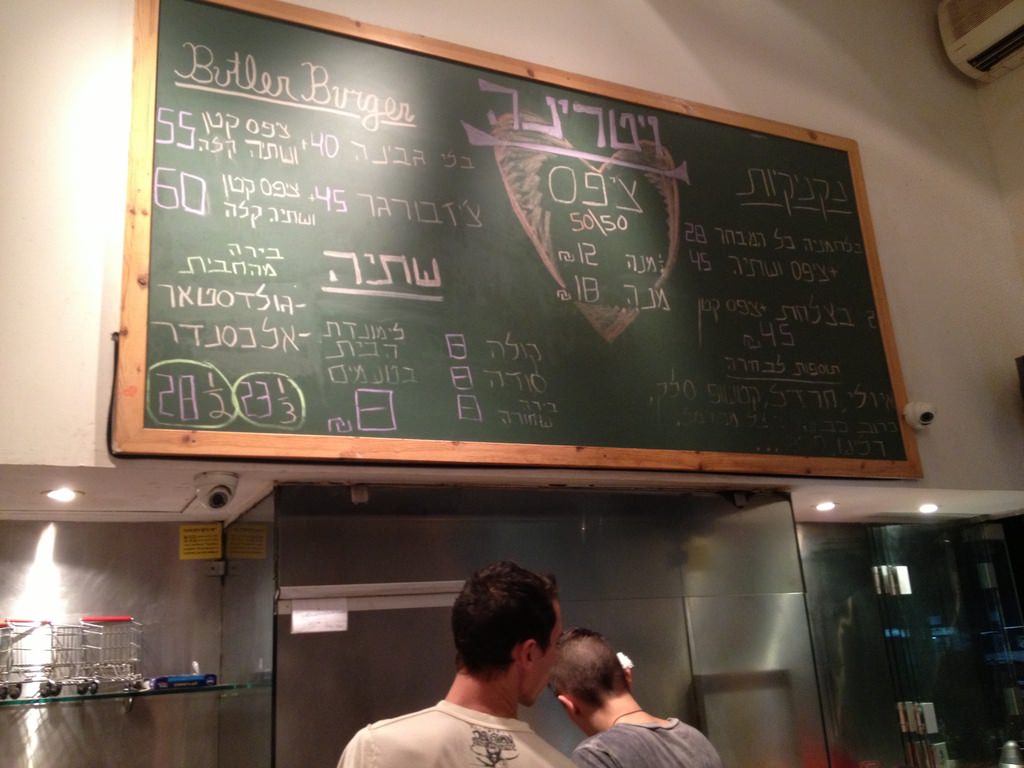 ויטרינה
Butler Burger
בלי גבינה 40 + צ׳פס קטן ושתיה קלה 55
צ׳יזבורגר 45 + צ׳פס קטן ושתיה קלה 60
שתיה
בירה
מהחבית
-גולדסטאר
-אלכסנדר
28 1/2
23 1/3
לימונדת
הבית
בטעמים
₪ 8
קולה 8
סודה 8
בירה
שחורה 8
צ׳יפס
50\50
מנה 12 ₪
מנה 18 ₪
נקניקיות
בלחמניה כל המבחר 28
+צ׳יפס ושתיה 45
2 בצלחת +צ׳פס קטן
45 ₪
תוספות לבחירה
חרדל, קטשופ
כרוב כבוש